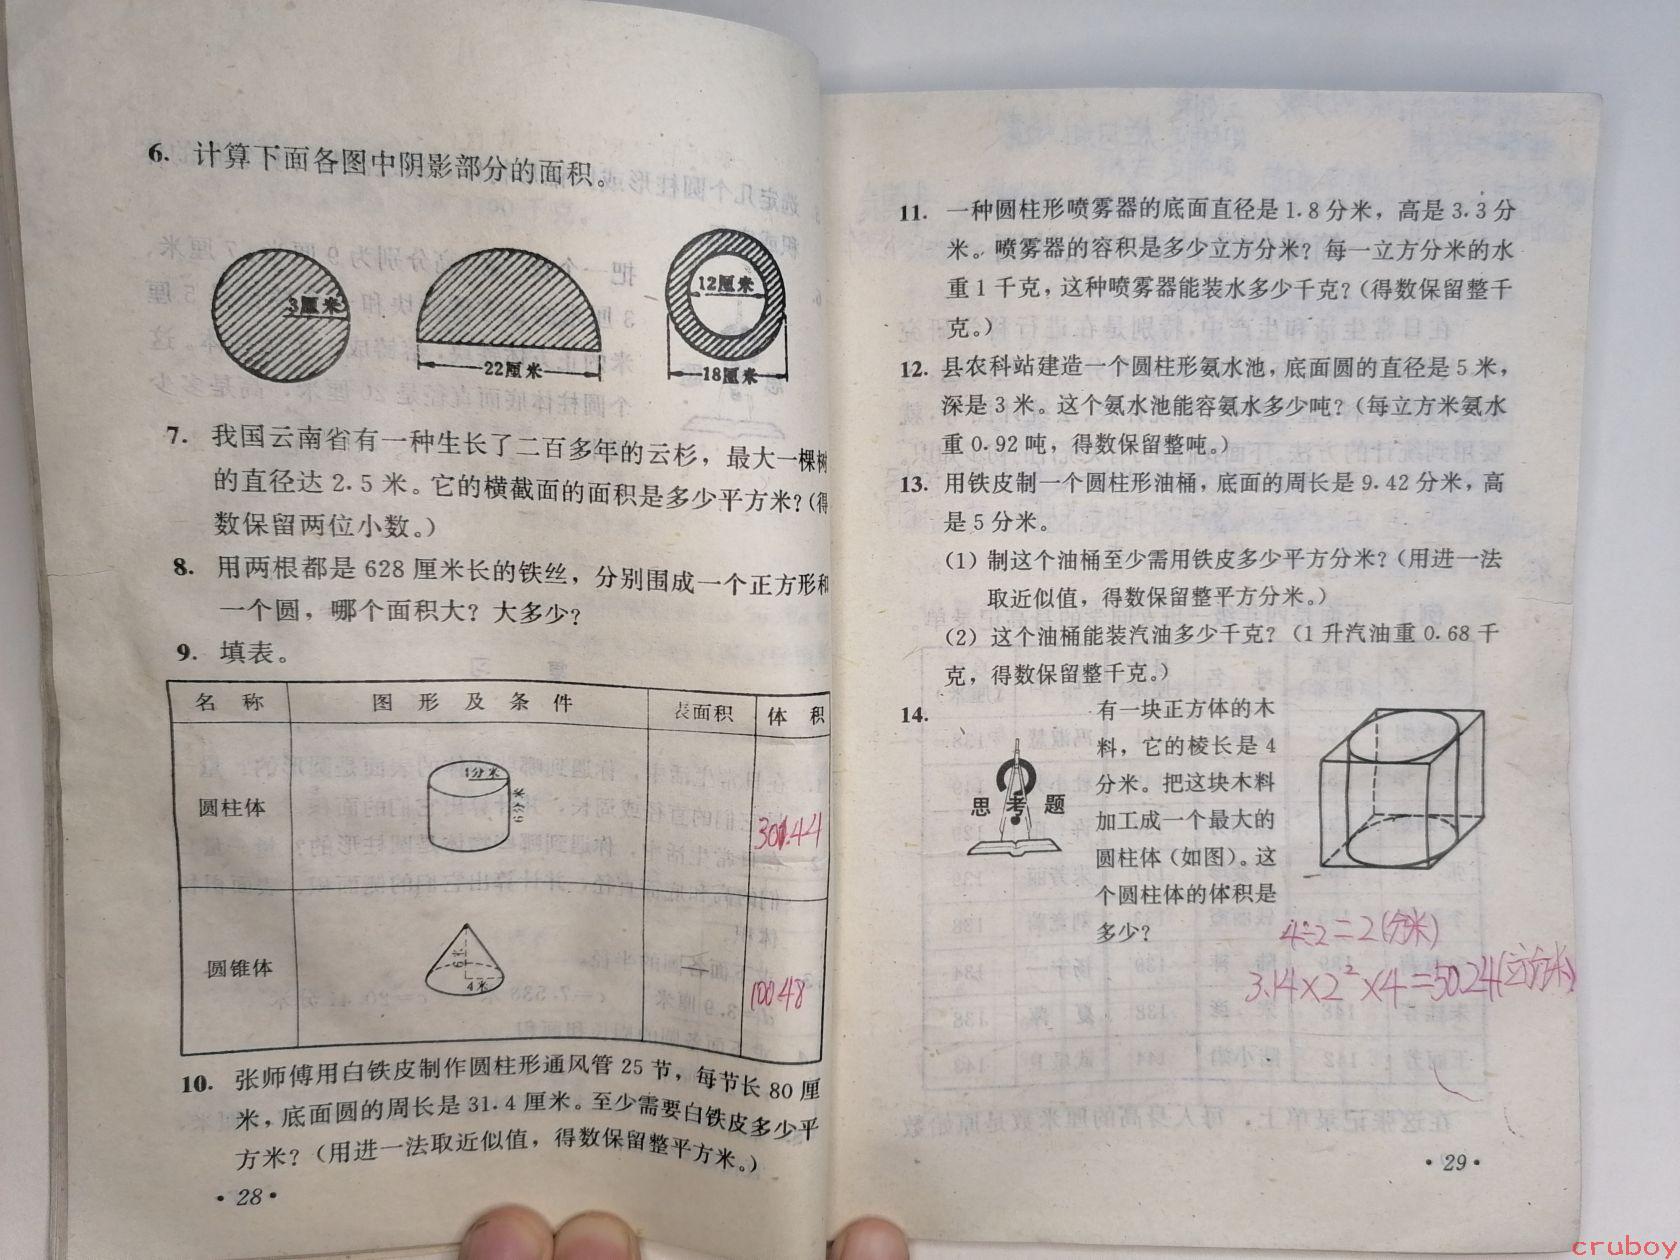 6. 计算下面各图中阴影部分的面积。
3厘米
22厘米
12厘米
18厘米
7. 我国云南省有一种生长了二百多年的云杉，最大一棵树
的直径达2.5米。它的横截面的面积是多少平方米？(得
数保留两位小数。)
8. 用两根都是628厘米长的铁丝，分别围成一个正方形和
一个圆，哪个面积大？大多少？
9. 填表。
名 称 图 形 及 条 件 表面积 体 积
圆柱体
圆锥体
6米
4米
100.48
10. 张师傅用白铁皮制作圆柱形通风管25节，每节长80厘
米，底面圆的周长是31.4厘米。至少需要白铁皮多少平
方米？(用进一法取近似值，得数保留整平方米。)
·28·
11. 一种圆柱形喷雾器的底面直径是1.8分米，高是3.3分
米。喷雾器的容积是多少立方分米？每一立方分米的水
重1千克，这种喷雾器能装水多少千克？(得数保留整千
克。)
12. 县农科站建造一个圆柱形氨水池，底面圆的直径是5米，
深是3米。这个氨水池能容氨水多少吨？(每立方米氨水
重0.92吨，得数保留整吨。)
13. 用铁皮制一个圆柱形油桶，底面的周长是9.42分米，高
是5分米。
(1) 制这个油桶至少需用铁皮多少平方分米？(用进一法
取近似值，得数保留整平方分米。)
(2) 这个油桶能装汽油多少千克？(1升汽油重0.68千
克，得数保留整千克。)
14.
思考题
有一块正方体的木
料，它的棱长是4
分米。把这块木料
加工成一个最大的
圆柱体（如图）。这
个圆柱体的体积是
多少？
4÷2=2(分米)
3.14×2²×4=50.24(立方分米)
·29·
cruboy